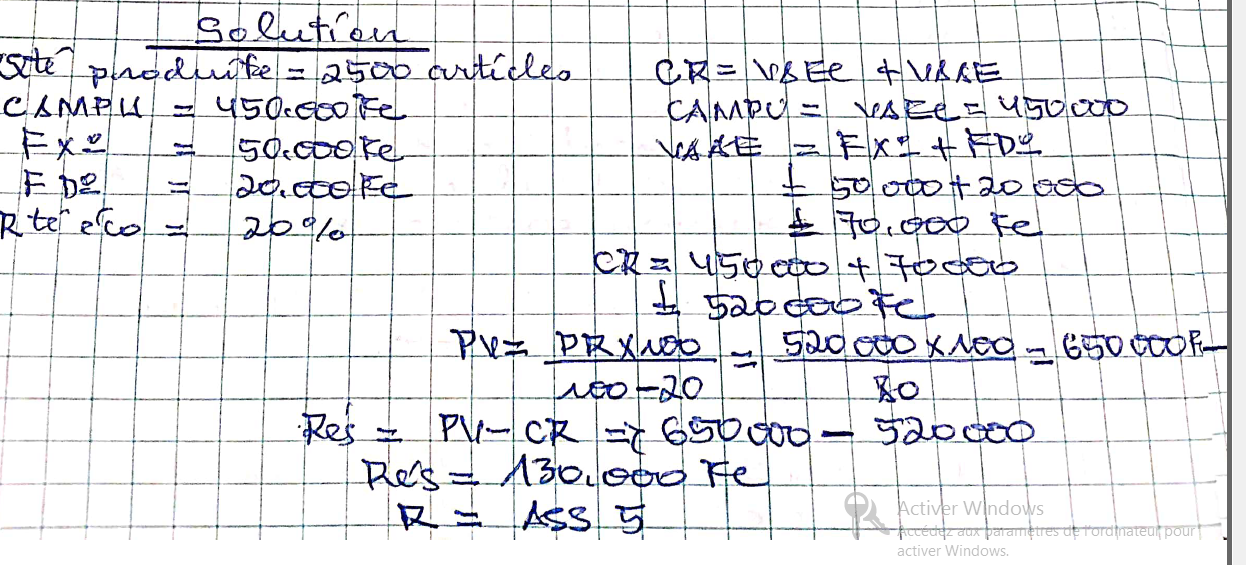 Solution
Qté produite = 2500 articles
CAMPU = 450.000 Fc
FXº = 50.000 Fc
FDº = 20.000 Fc
Rté éco = 20%
CR = VSEc + VSAE
CAMPU = VSEc = 450 000
VSAE = FXº + FDº
= 50 000 + 20 000
= 70.000 Fc
CR = 450 000 + 70 000
= 520 000 Fc
PV = PR x 100 / 100 - 20 = 520 000 x 100 / 80 = 650 000 F
Rés = PV - CR => 650 000 - 520 000
Rés = 130.000 Fc
R = ASS 5
Activer Windows
Accédez aux paramètres de l'ordinateur pour
activer Windows.